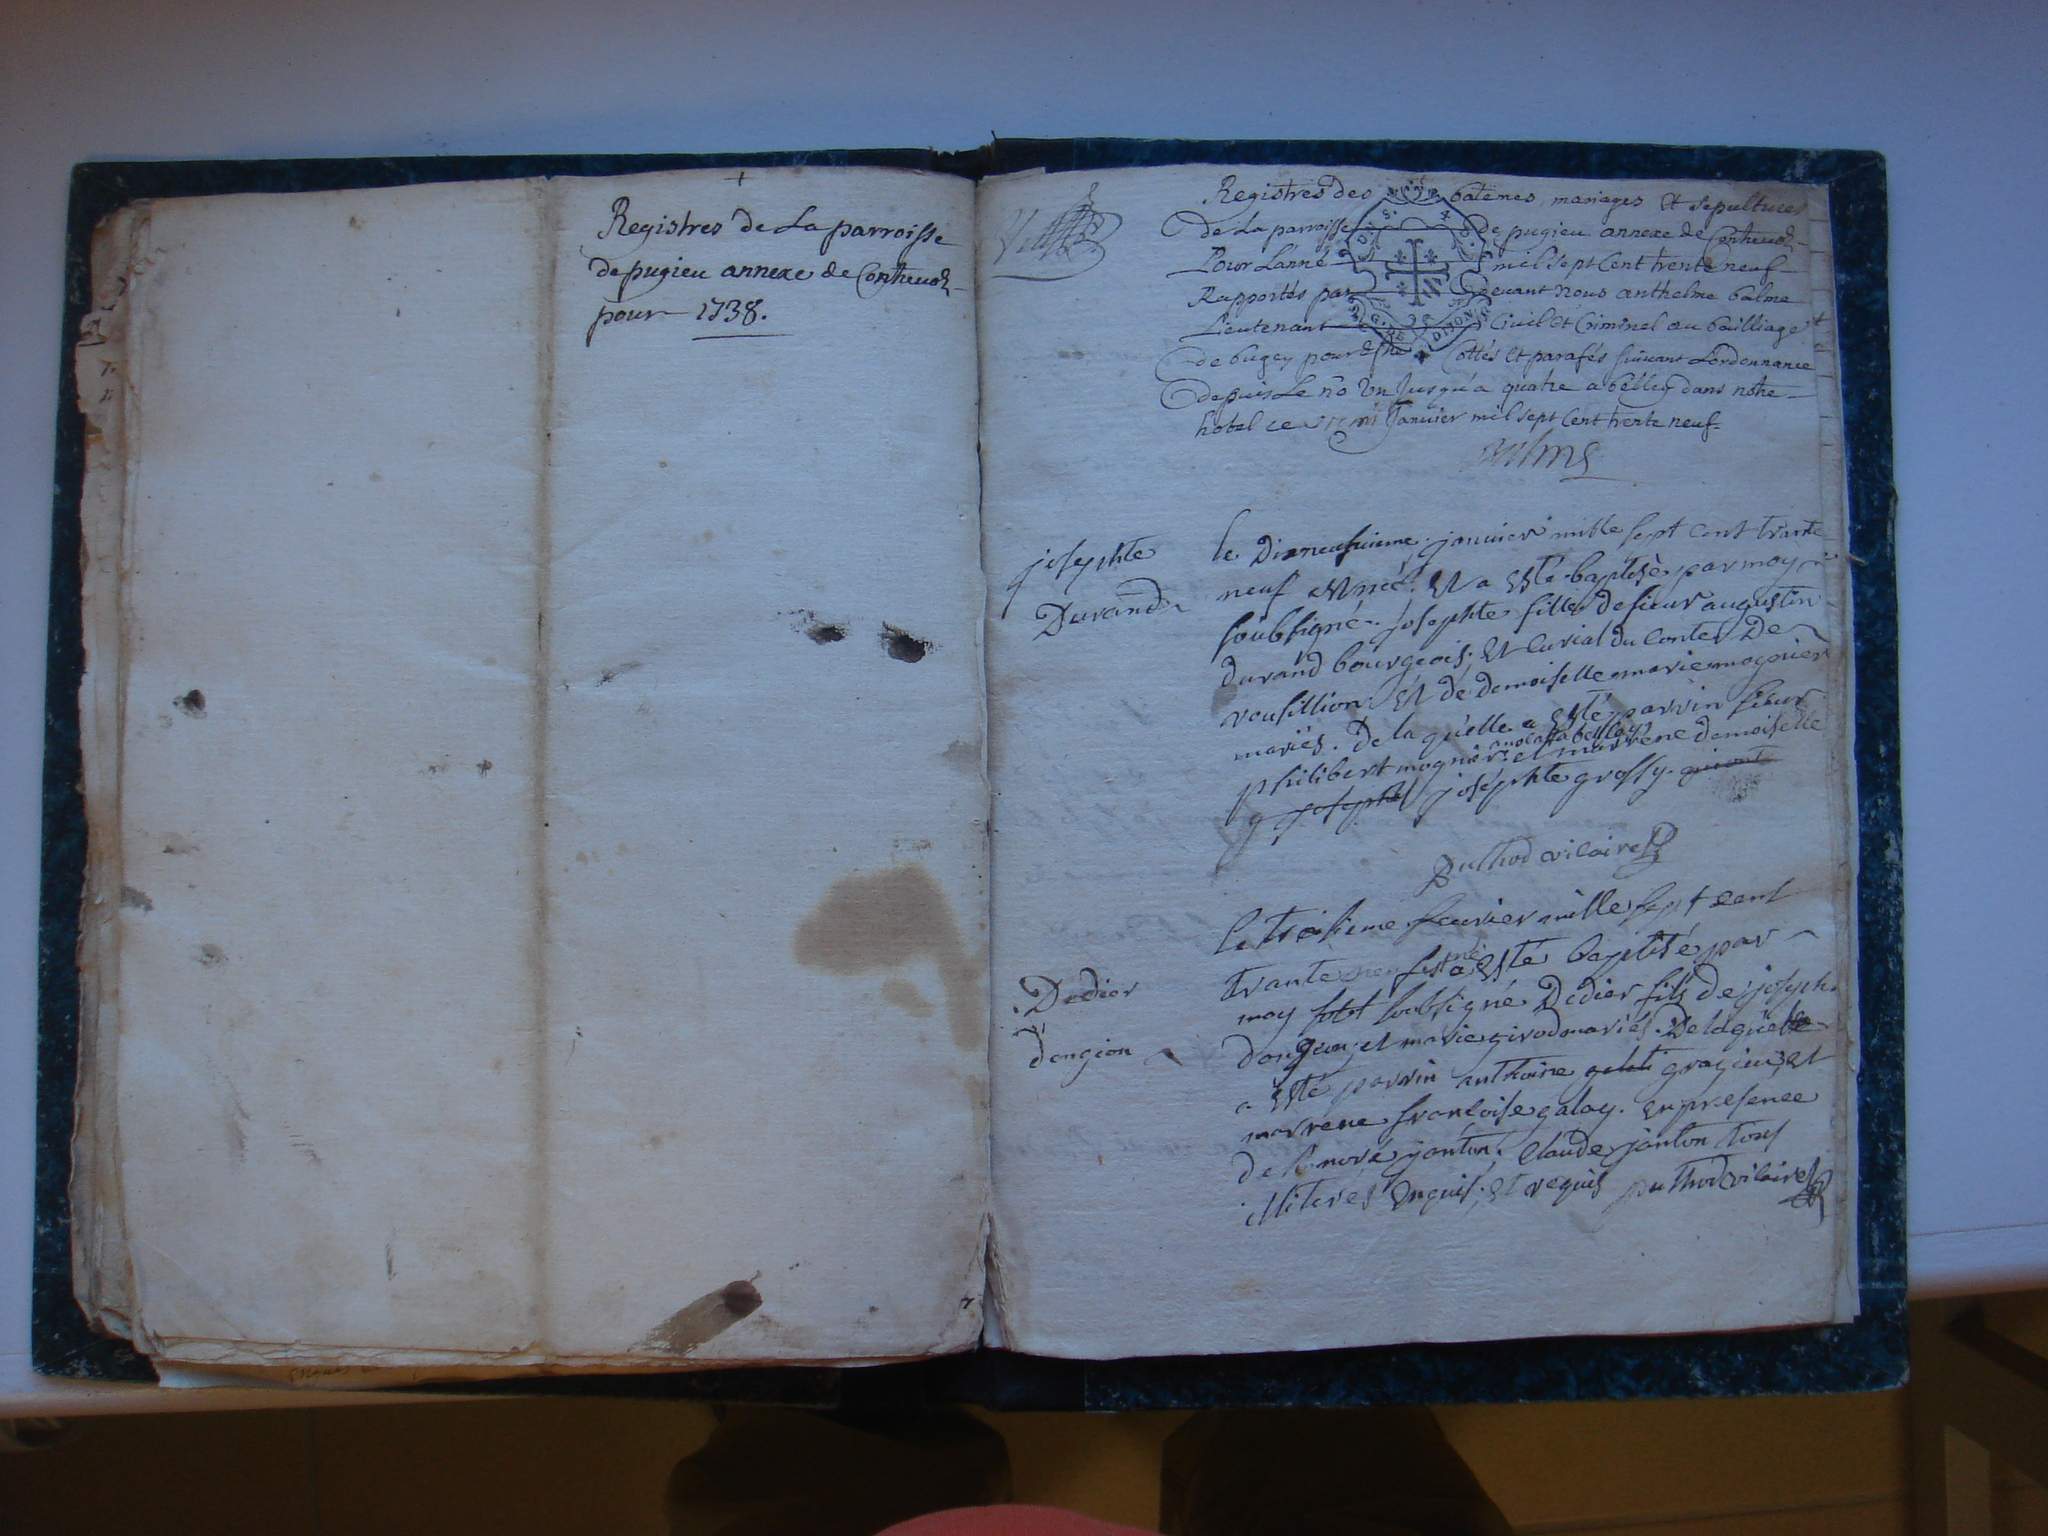 Registres de La parroisse
de pugieu annexe de Contheuod
pour 1738.
Registres des batêmes mariages et sepultures
de La parroisse de pugieu annexe de Contheuod
Pour L'anné mil sept Cent trente neuf
Rapportés par deuant Nous anthelme balme
Lieutenant Ciuil et Criminel au bailliage
de bugey pour estre Cottés et parafés suiuant L'ordonnance
depuis Le no Un Jusqu'a quatre a belley dans notre
hotel ce Janvier mil sept Cent trente neuf
Balme
josephte
Durand
le Dixneufuieme janvier mille sept cent trante
neuf est néé. et a esté baptisée par moy
soubsigné. josephte fille de sieur augustin
durand bourgeois. et Curial du Conter De
rousillion et de demoiselle marie mognier
mariés. De la quelle a esté parrin sieur
philibert mognier auocat a belley et marrene demoiselle
josephte josephte grossy.
puthod vicaire
Dedier
dongion
le troisieme feurier mille sept cent
trante neuf est né a esté baptisé par
moy soubsigné Dedier fils de joseph
dongion et marie girod mariés. De laquelle
a esté parrin anthoine gragieu, et
marrene francoise galay. en presence
de janton. Claude janton tous
illiterés enquis, et requis puthod vicaire
7